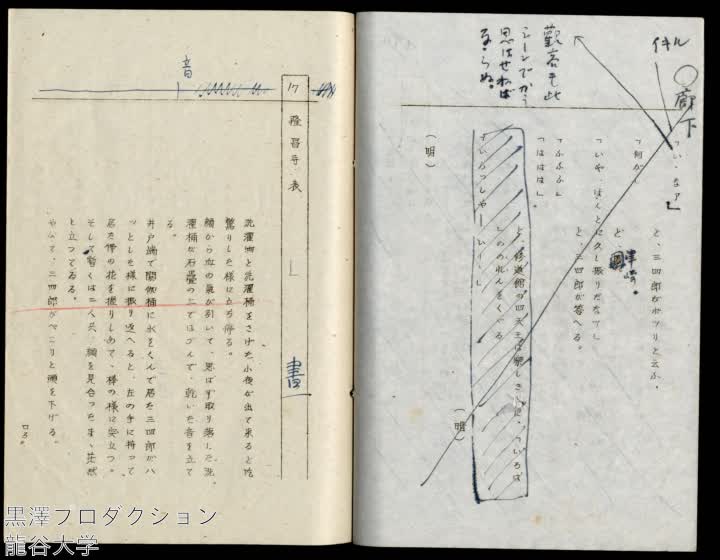 廊下
イキル
観客も此
シーンでかう
思はせねば
ならぬ。
「いゝなァ」
と、三四郎がポツリと云ふ。
「何が」
と、津崎。
「いや、ほんとに久し振りだなァ」
と、三四郎が答へる。
「ふふふ」
「ははは」。
と、修道館の四天王は楽しさうに、「いろは」
ののれんをくゞる
「いらつしやーい」
(暗)
(明)
17 隆昌寺表
音
書
洗濯物と洗濯桶をさげた小夜が出て来ると吃
驚りした様に立ち停る。
顔から血の気が引いて、思はず取り落した洗
濯桶が石畳の上ではづんで、乾いた音を立て
る。
井戸端で閼伽桶に水をくんで居た三四郎がハ
ッとした様に振り返へると、左の手に持つて
居た僧の花を握りしめて、棒の様に突立つ。
そして暫くは二人共、顔を見合つたまゝ茫然
と立つてゐる。
やがて、三四郎がぺこりと頭を下げる。
黒澤プロダクション
龍谷大学